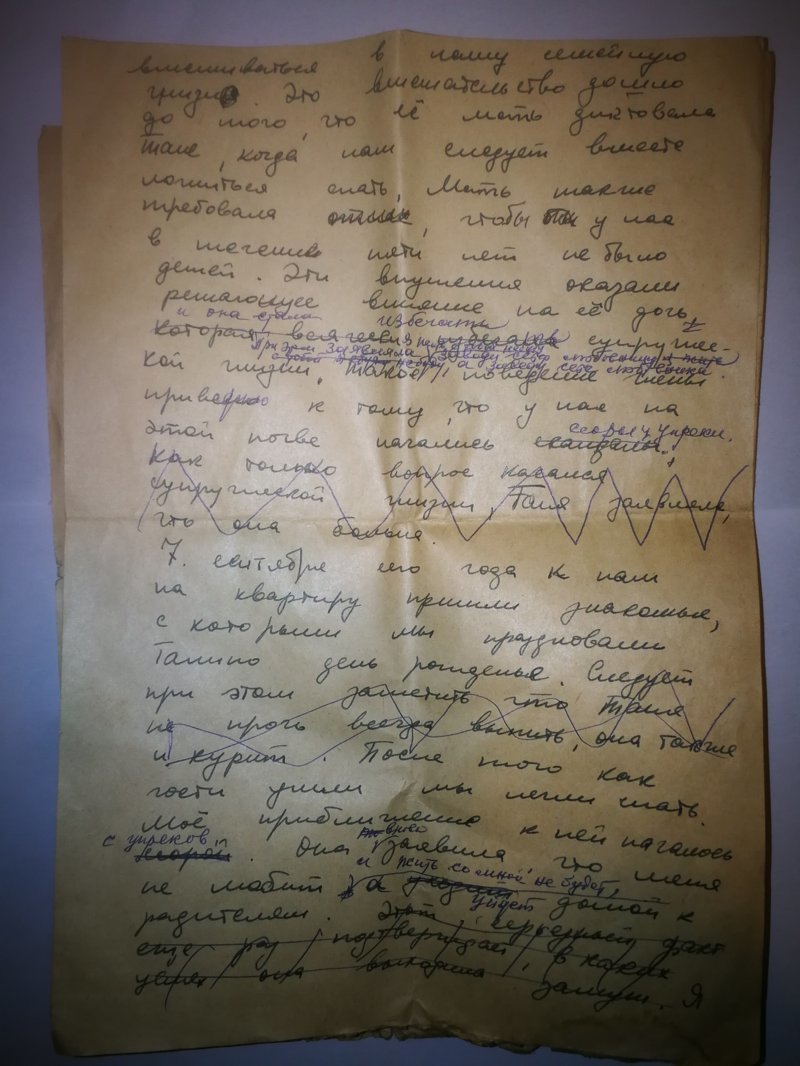 вмешиваться в нашу семейную
жизнь. Это вмешательство дошло
до того, что её мать диктовала
Тане, когда нам следует вместе
ложиться спать, Мать также
требовала, чтобы у нас
в течение пяти лет не было
детей. Эти внушения оказали
решающее влияние на её дочь,
и она стала избегать
которая всячески супружес-
При этом заявляла
кой жизни, такое поведение жены
привело к тому, что у нас на
ссоры и упреки.
этой почве начались скандалы.
Как только вопрос касался
супружеской жизни, Таня заявляла,
что она больна.
7. сентября сего года к нам
на квартиру пришли знакомые,
с которыми мы праздновали
Танино день рожденья. Следует
при этом заметить что Таня
не прочь всегда выпить, она также
и курит. После того как
гости ушли мы легли спать.
Моё приближение к ней началось
с упреков
ссорой. Она заявила что меня
и жить со мной не будет,
не любит а уйдет домой к
радителям. Этот факт
еще раз подтверждает, в каких
целях она выходила замуж. Я